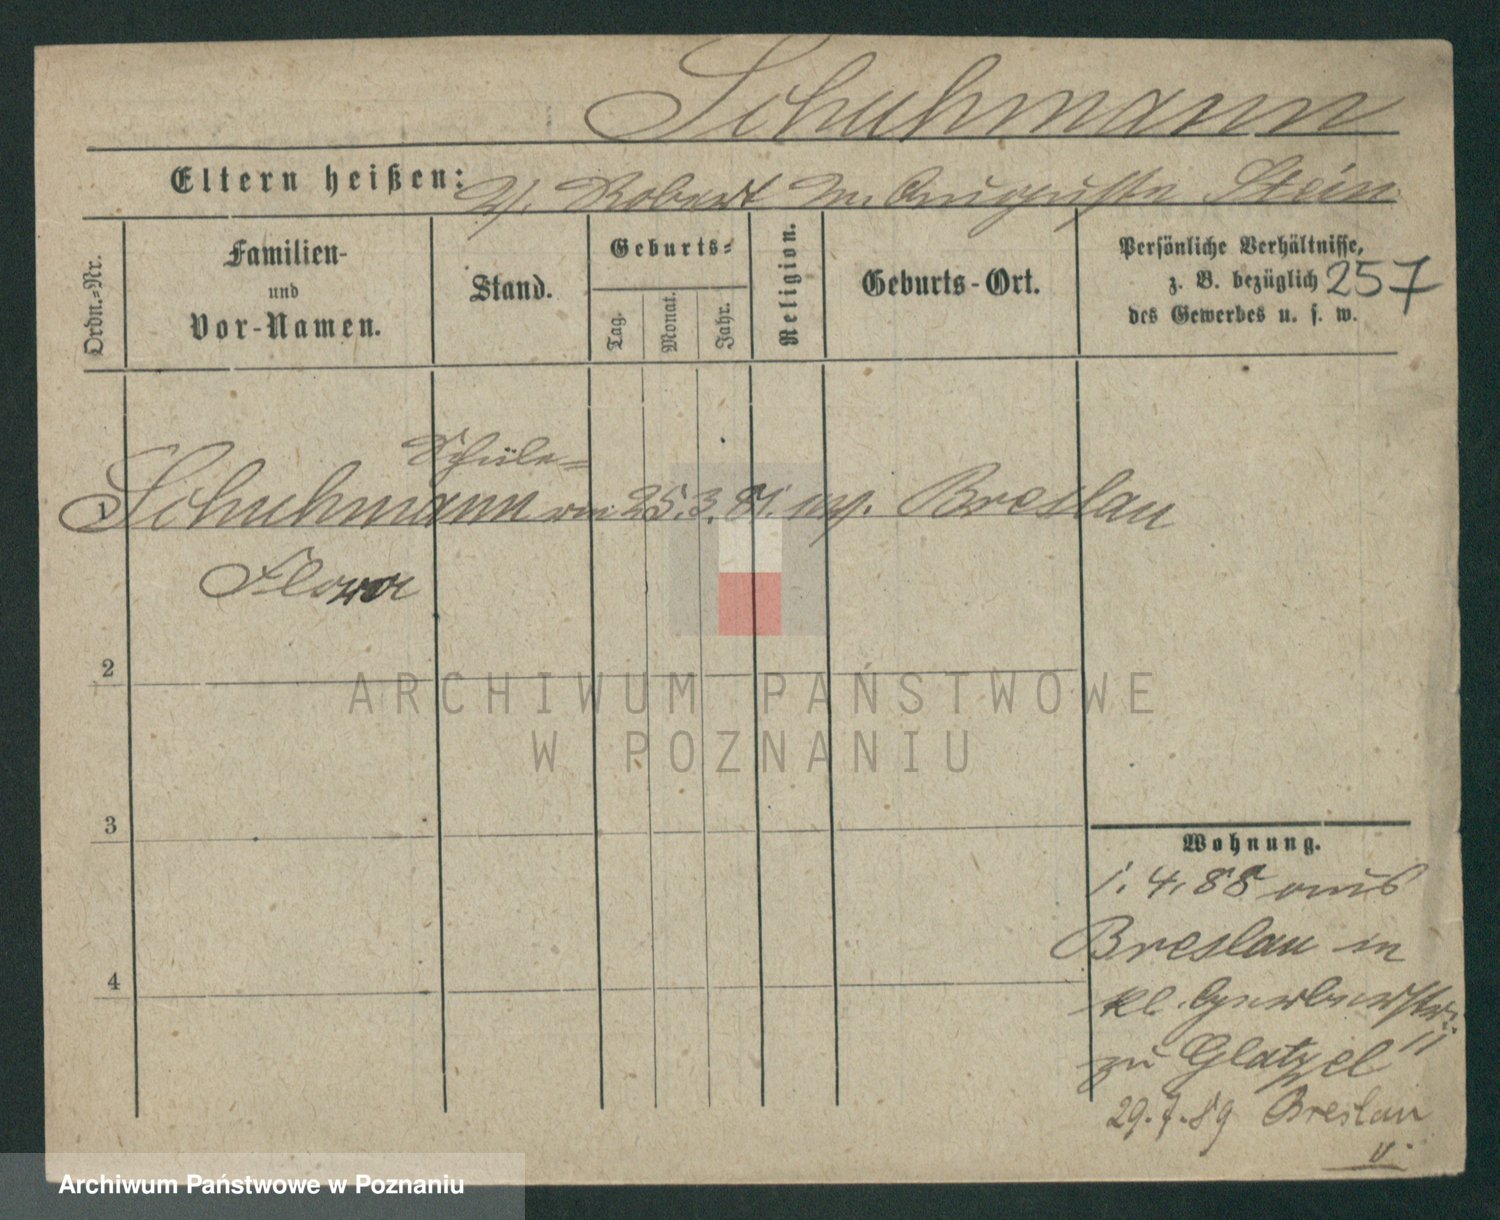 Schuhmann
Eltern heißen: V. Robert M. Auguste Stein
Ordn.-Nr.
Familien-
und
Vor-Namen.
Stand.
Geburts-
Tag.
Monat.
Jahr.
Religion.
Geburts-Ort.
Persönliche Verhältnisse,
z. B. bezüglich
des Gewerbes u. s. w.
257
Schüle-
1 Schuhmann rin 25. 3. 81. ev. Breslau
Flora
2
3
4
Wohnung.
1. 4. 88 aus
Breslau in
kl. Gerberstr.
11
zu Glatzel
29. 7. 89 Breslau
ARCHIWUM PAŃSTWOWE
W POZNANIU
Archiwum Państwowe w Poznaniu